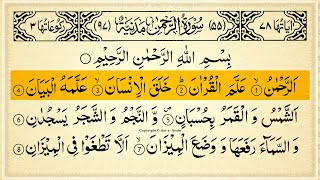 اٰيَاتُهَا ٧٨ (٥٥) سُوْرَةُ الرَّحْمٰنِ مَدَنِيَّةٌ (٩٧) رُكُوْعَاتُهَا ٣
بِسْمِ اللّٰهِ الرَّحْمٰنِ الرَّحِيْمِ
اَلرَّحْمٰنُ ① عَلَّمَ الْقُرْاٰنَ ② خَلَقَ الْاِنْسَانَ ③ عَلَّمَهُ الْبَيَانَ ④
اَلشَّمْسُ وَ الْقَمَرُ بِحُسْبَانٍ ⑤ وَّ النَّجْمُ وَ الشَّجَرُ يَسْجُدٰنِ ⑥
وَ السَّمَآءَ رَفَعَهَا وَ وَضَعَ الْمِيْزَانَ ⑦ اَلَّا تَطْغَوْا فِی الْمِيْزَانِ ⑧